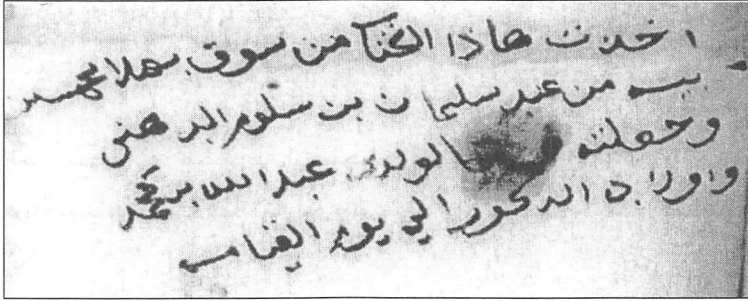 اخذت هاذا الكتاب من سوق بهلا بخمسة
بيسه من عند سليمان بن سلوم البرهني
وجعلته لولدي عبد الله بن محمد
واولاده الذكور الي يوم القيامه